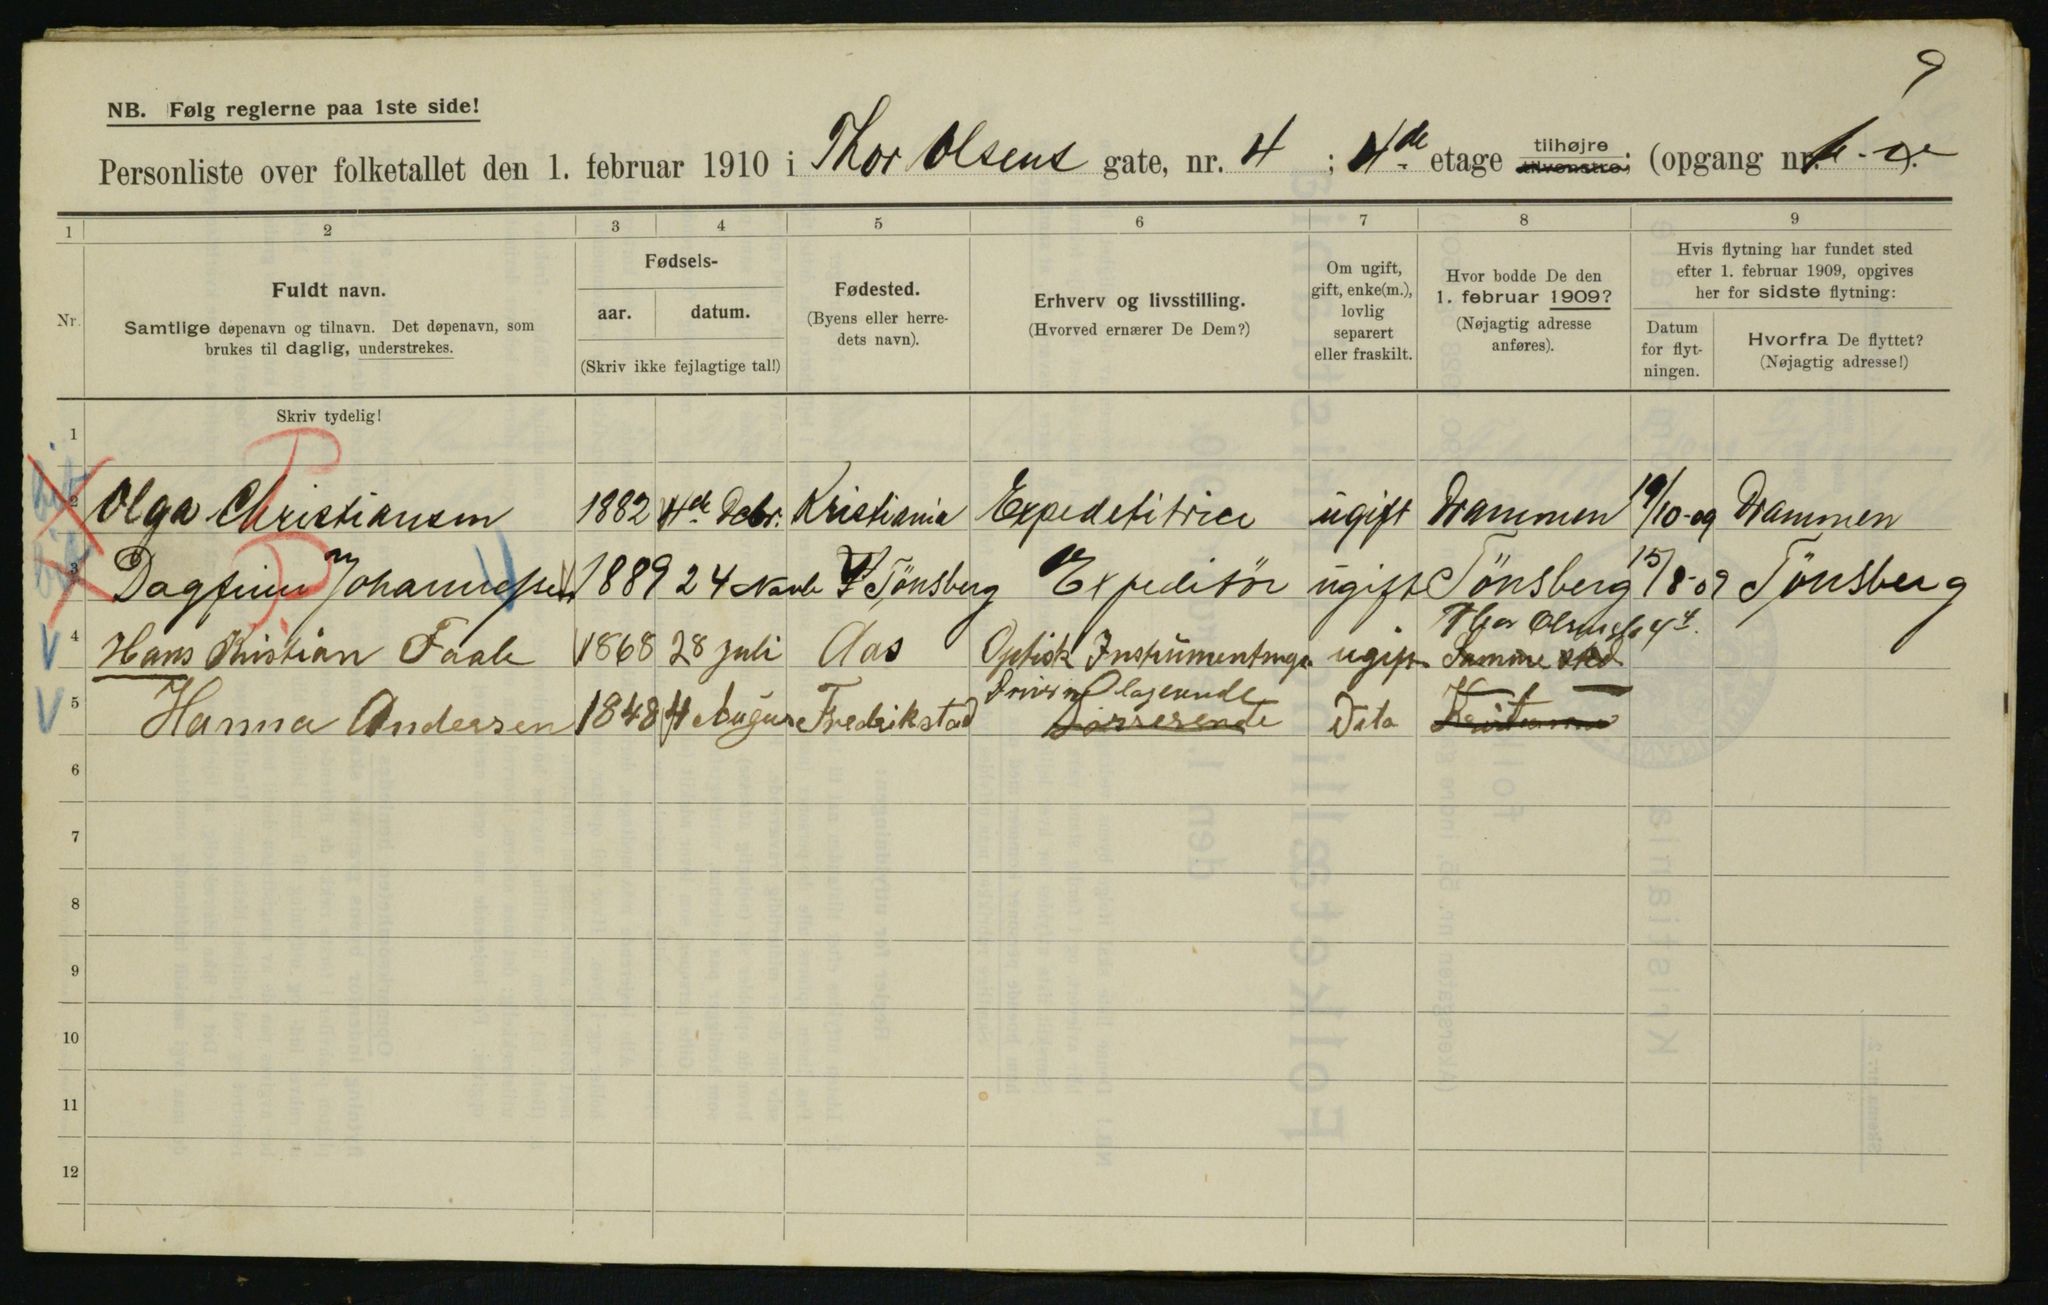 9
NB. Følg reglerne paa 1ste side!
Personliste over folketallet den 1. februar 1910 i Thor Olsens gate, nr. 4; 4de etage tilhøjre tilvenstre; (opgang nr. ).
1 2 3 4 5 6 7 8 9
Nr.
Fuldt navn.
Samtlige døpenavn og tilnavn. Det døpenavn, som
brukes til daglig, understrekes.
Fødsels-
aar. datum.
(Skriv ikke fejlagtige tal!)
Fødested.
(Byens eller herre-
dets navn).
Erhverv og livsstilling.
(Hvorved ernærer De Dem?)
Om ugift,
gift, enke(m.),
lovlig
separert
eller fraskilt.
Hvor bodde De den
1. februar 1909?
(Nøjagtig adresse
anføres).
Hvis flytning har fundet sted
efter 1. februar 1909, opgives
her for sidste flytning:
Datum
for flyt-
ningen.
Hvorfra De flyttet?
(Nøjagtig adresse!)
Skriv tydelig!
1
2 Olga Christiansen 1882 4de Debr. Kristiania Expedetitrice ugift Drammen 19/10-09 Drammen
3 Dagfinn Johannessen 1889 24 Novb Tönsberg Expeditör ugift Tönsberg 15/8-09 Tönsberg
4 Hans Kristian Faale 1868 28 juli Aas Optisk Instrumentmga ugift Thor Olsensg 4 4. Samme sted
5 Hanna Andersen 1848 4 August Fredrikstad Dito Kristiania
6
7
8
9
10
11
12